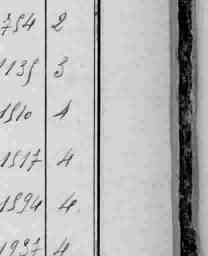 754 2
1135 3
1510 4
1517 4
1594 4
1937 4